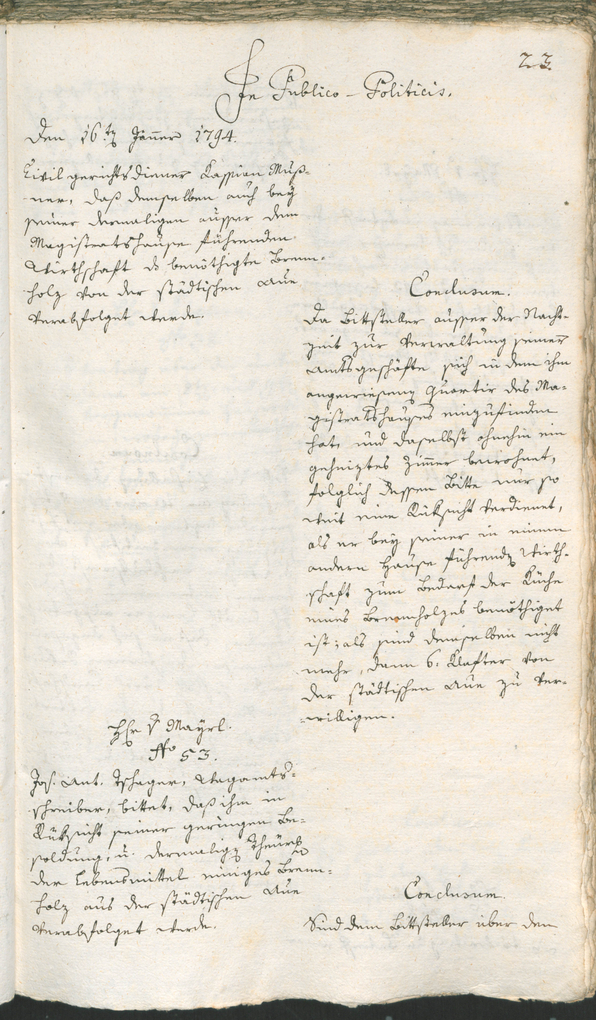 23.
In Publico-Politicis.
Den 16ten Jäner 1794.
Civilgerichtsdiener Cassian Muß-
ner, daß demselben auch bey
seiner dermaligen ausser dem
Magistratshause führenden
Wirthschaft das benöthigte Brenn-
holz von der städtischen Aue
verabfolget werde.
Conclusum.
Da Bittsteller ausser der Nacht-
zeit zur Verwaltung seiner
Amtsgeschäfte sich in dem ihm
angewiesenen Quartir des Ma-
gistratshauses einzufinden
hat, und daselbst ohnehin ein
geheiztes Zimmer bewohnet,
folglich dessen Bitte nur so
weit eine Rüksicht verdienet,
als er bey seiner in einem
andern Hause führenden Wirth-
schaft zum Bedarf der Küche
eines Brennholzes benöthiget
ist; als sind demselben nicht
mehr, dann 6. Klafter von
der städtischen Aue zu ver-
willigen.
Hr v Mayrl.
No 53.
Jos. Ant. Tschager, Wagamts-
schreiber, bittet, daß ihm in
Rüksicht seiner geringen Be-
soldung, u. dermaligen Theürung
der Lebensmittel einiges Brenn-
holz aus der städtischen Aue
verabfolget werde.
Conclusum.
Sind dem Bittsteller über den